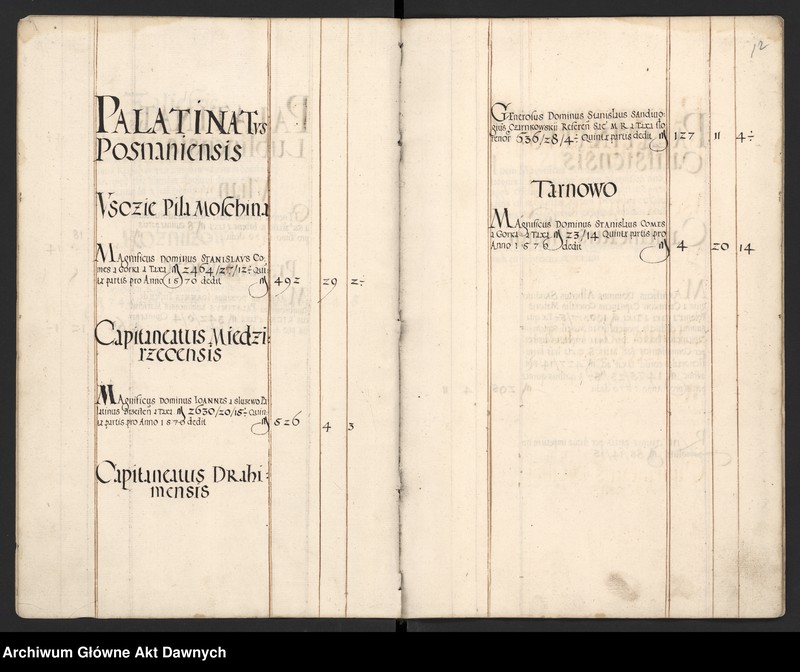 PALATINATVS
Posnaniensis
Vsozie Pila Moschina
Magnificus Dominus STANISLAVS Co:
mes a Gorka a Taxa fl 2464/27/12÷ Quin
tæ partis pro Anno 1576 dedit fl 492 29 2÷
Capitaneatus Miedzi:
rzecensis
Magnificus Dominus IOANNES a Sluzewo Pa
latinus Bresten a Taxa fl 2630/20/15÷ Quin
tæ partis pro Anno 1576 dedit fl 526 4 3
Capitaneatus DRahi:
mensis
12
Generosus Dominus Stanislaus Sandiuo
gius Czarnkowskii Referen Sac M. R. a Taxa flo
renor 636/28/4÷ Quintæ partis dedit fl 127 11 4÷
Tarnowo
Magnificus Dominus STANISLAUS COMES
a GORKA a TAXA fl 23/14 Quintæ partis pro
Anno 1576 dedit fl 4 20 14
Archiwum Główne Akt Dawnych